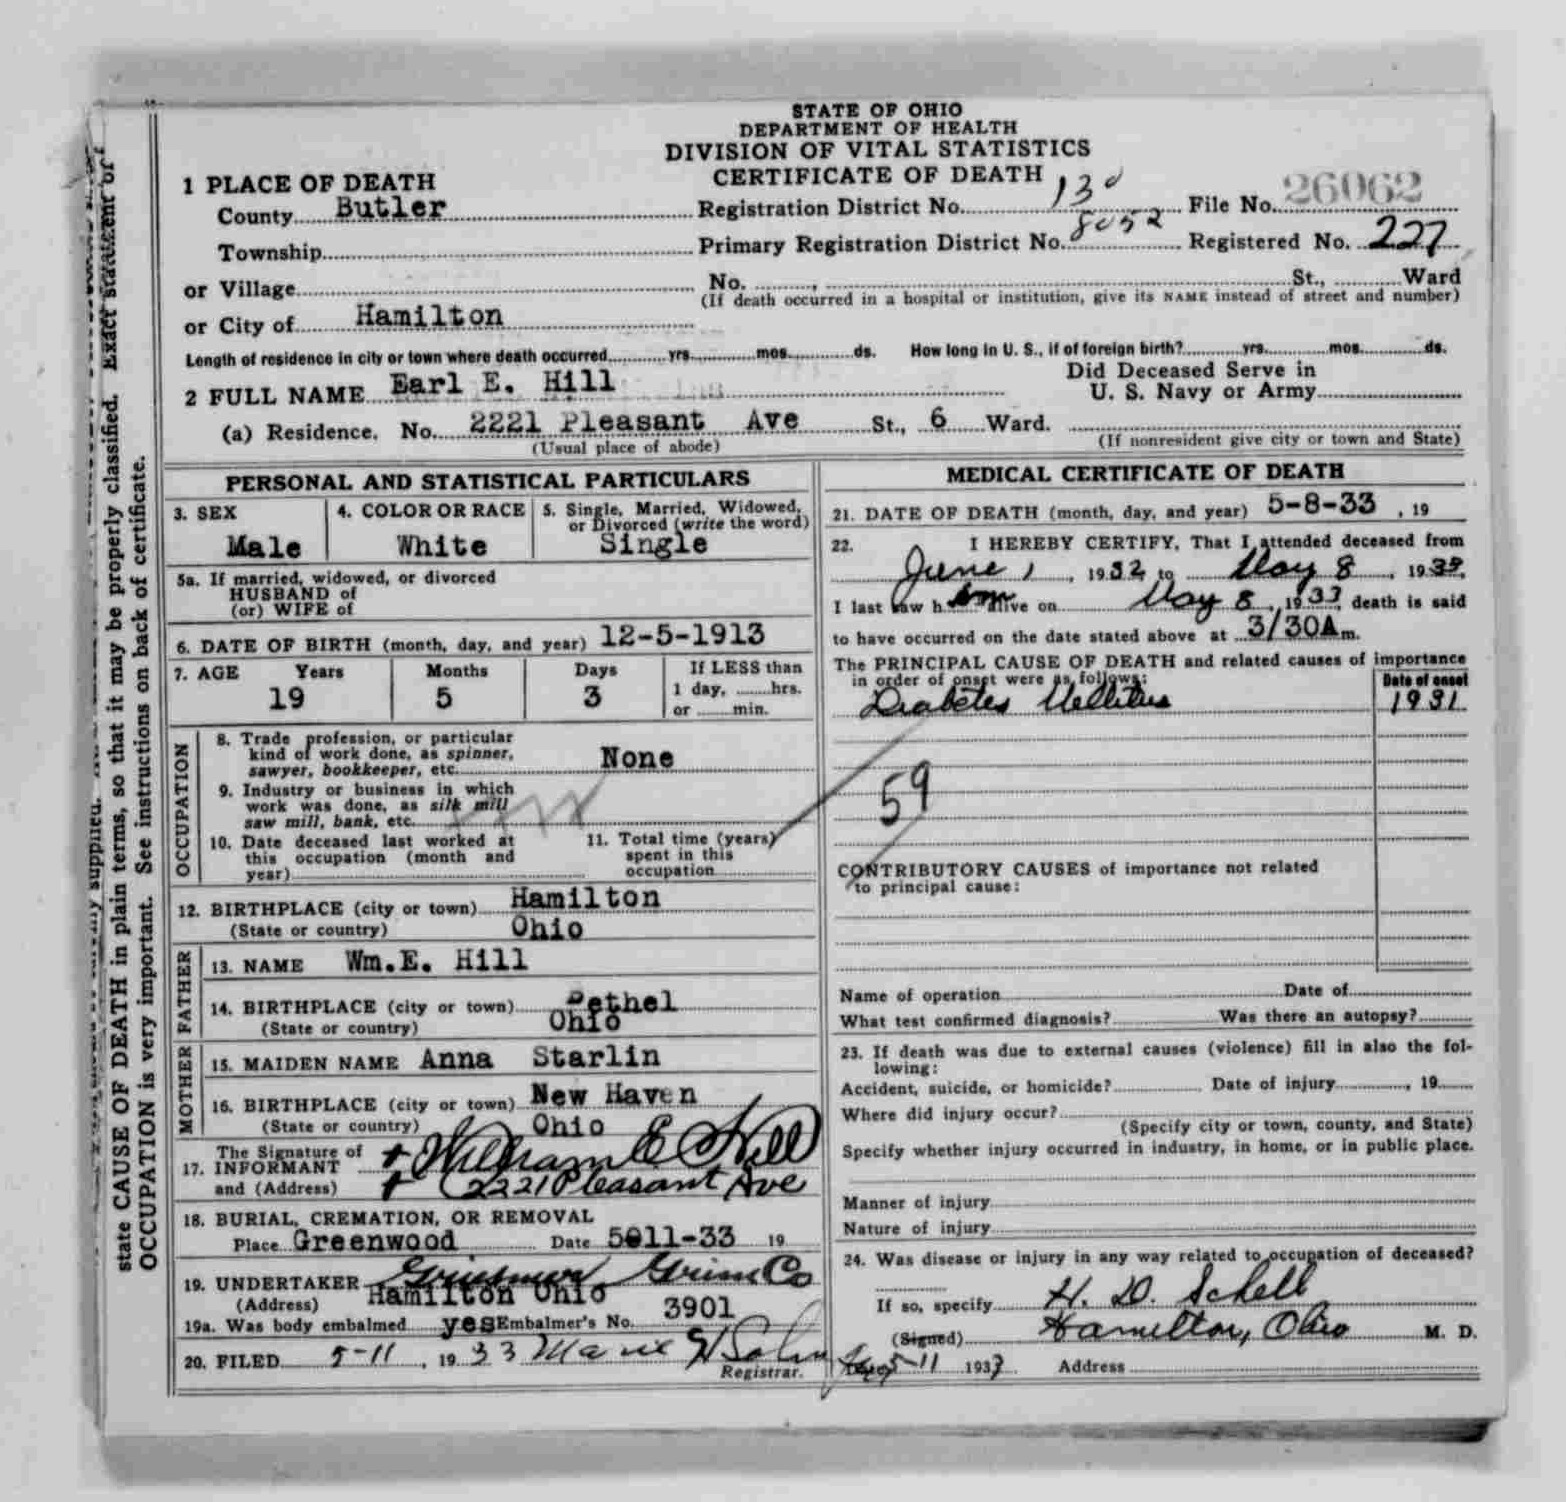 STATE OF OHIO
DEPARTMENT OF HEALTH
DIVISION OF VITAL STATISTICS
CERTIFICATE OF DEATH
1 PLACE OF DEATH
County Butler
Registration District No. 130 File No. 26062
Township
Primary Registration District No. 8052 Registered No. 227
or Village
No. , St., Ward
(If death occurred in a hospital or institution, give its NAME instead of street and number)
or City of Hamilton
Length of residence in city or town where death occurred yrs. mos. ds. How long in U. S., if of foreign birth? yrs. mos. ds.
2 FULL NAME Earl E. Hill
Did Deceased Serve in
U. S. Navy or Army
(a) Residence. No. 2221 Pleasant Ave St., 6 Ward.
(Usual place of abode) (If nonresident give city or town and State)
PERSONAL AND STATISTICAL PARTICULARS
3. SEX Male
4. COLOR OR RACE White
5. Single, Married, Widowed, or Divorced (write the word) Single
5a. If married, widowed, or divorced
HUSBAND of
(or) WIFE of
6. DATE OF BIRTH (month, day, and year) 12-5-1913
7. AGE Years Months Days If LESS than
19 5 3 1 day, hrs.
or min.
OCCUPATION
8. Trade profession, or particular
kind of work done, as spinner,
sawyer, bookkeeper, etc. None
9. Industry or business in which
work was done, as silk mill
saw mill, bank, etc.
10. Date deceased last worked at
this occupation (month and
year)
11. Total time (years)
spent in this
occupation
12. BIRTHPLACE (city or town) Hamilton
(State or country) Ohio
FATHER
13. NAME Wm.E. Hill
14. BIRTHPLACE (city or town) Bethel
(State or country) Ohio
MOTHER
15. MAIDEN NAME Anna Starlin
16. BIRTHPLACE (city or town) New Haven
(State or country) Ohio
17. The Signature of
INFORMANT William E Hill
and (Address) 2221 Pleasant Ave
18. BURIAL, CREMATION, OR REMOVAL
Place Greenwood Date 5011-33 19
19. UNDERTAKER Grim Co
(Address) Hamilton Ohio
19a. Was body embalmed yes Embalmer's No. 3901
20. FILED 5-11, 1933
Registrar.
MEDICAL CERTIFICATE OF DEATH
21. DATE OF DEATH (month, day, and year) 5-8-33 , 19
22. I HEREBY CERTIFY, That I attended deceased from
June 1, 1932 to May 8, 1933,
I last saw him alive on May 8, 1933, death is said
to have occurred on the date stated above at 3/30A m.
The PRINCIPAL CAUSE OF DEATH and related causes of importance
in order of onset were as follows: Date of onset
Diabetes Mellitus 1931
59
CONTRIBUTORY CAUSES of importance not related
to principal cause:
Name of operation Date of
What test confirmed diagnosis? Was there an autopsy?
23. If death was due to external causes (violence) fill in also the fol-
lowing:
Accident, suicide, or homicide? Date of injury , 19
Where did injury occur?
(Specify city or town, county, and State)
Specify whether injury occurred in industry, in home, or in public place.
Manner of injury
Nature of injury
24. Was disease or injury in any way related to occupation of deceased?
If so, specify H. D. Schell
(Signed) Hamilton, Ohio M. D.
5-11 1933 Address
state CAUSE OF DEATH in plain terms, so that it may be properly classified. Exact statement of
OCCUPATION is very important. See instructions on back of certificate.